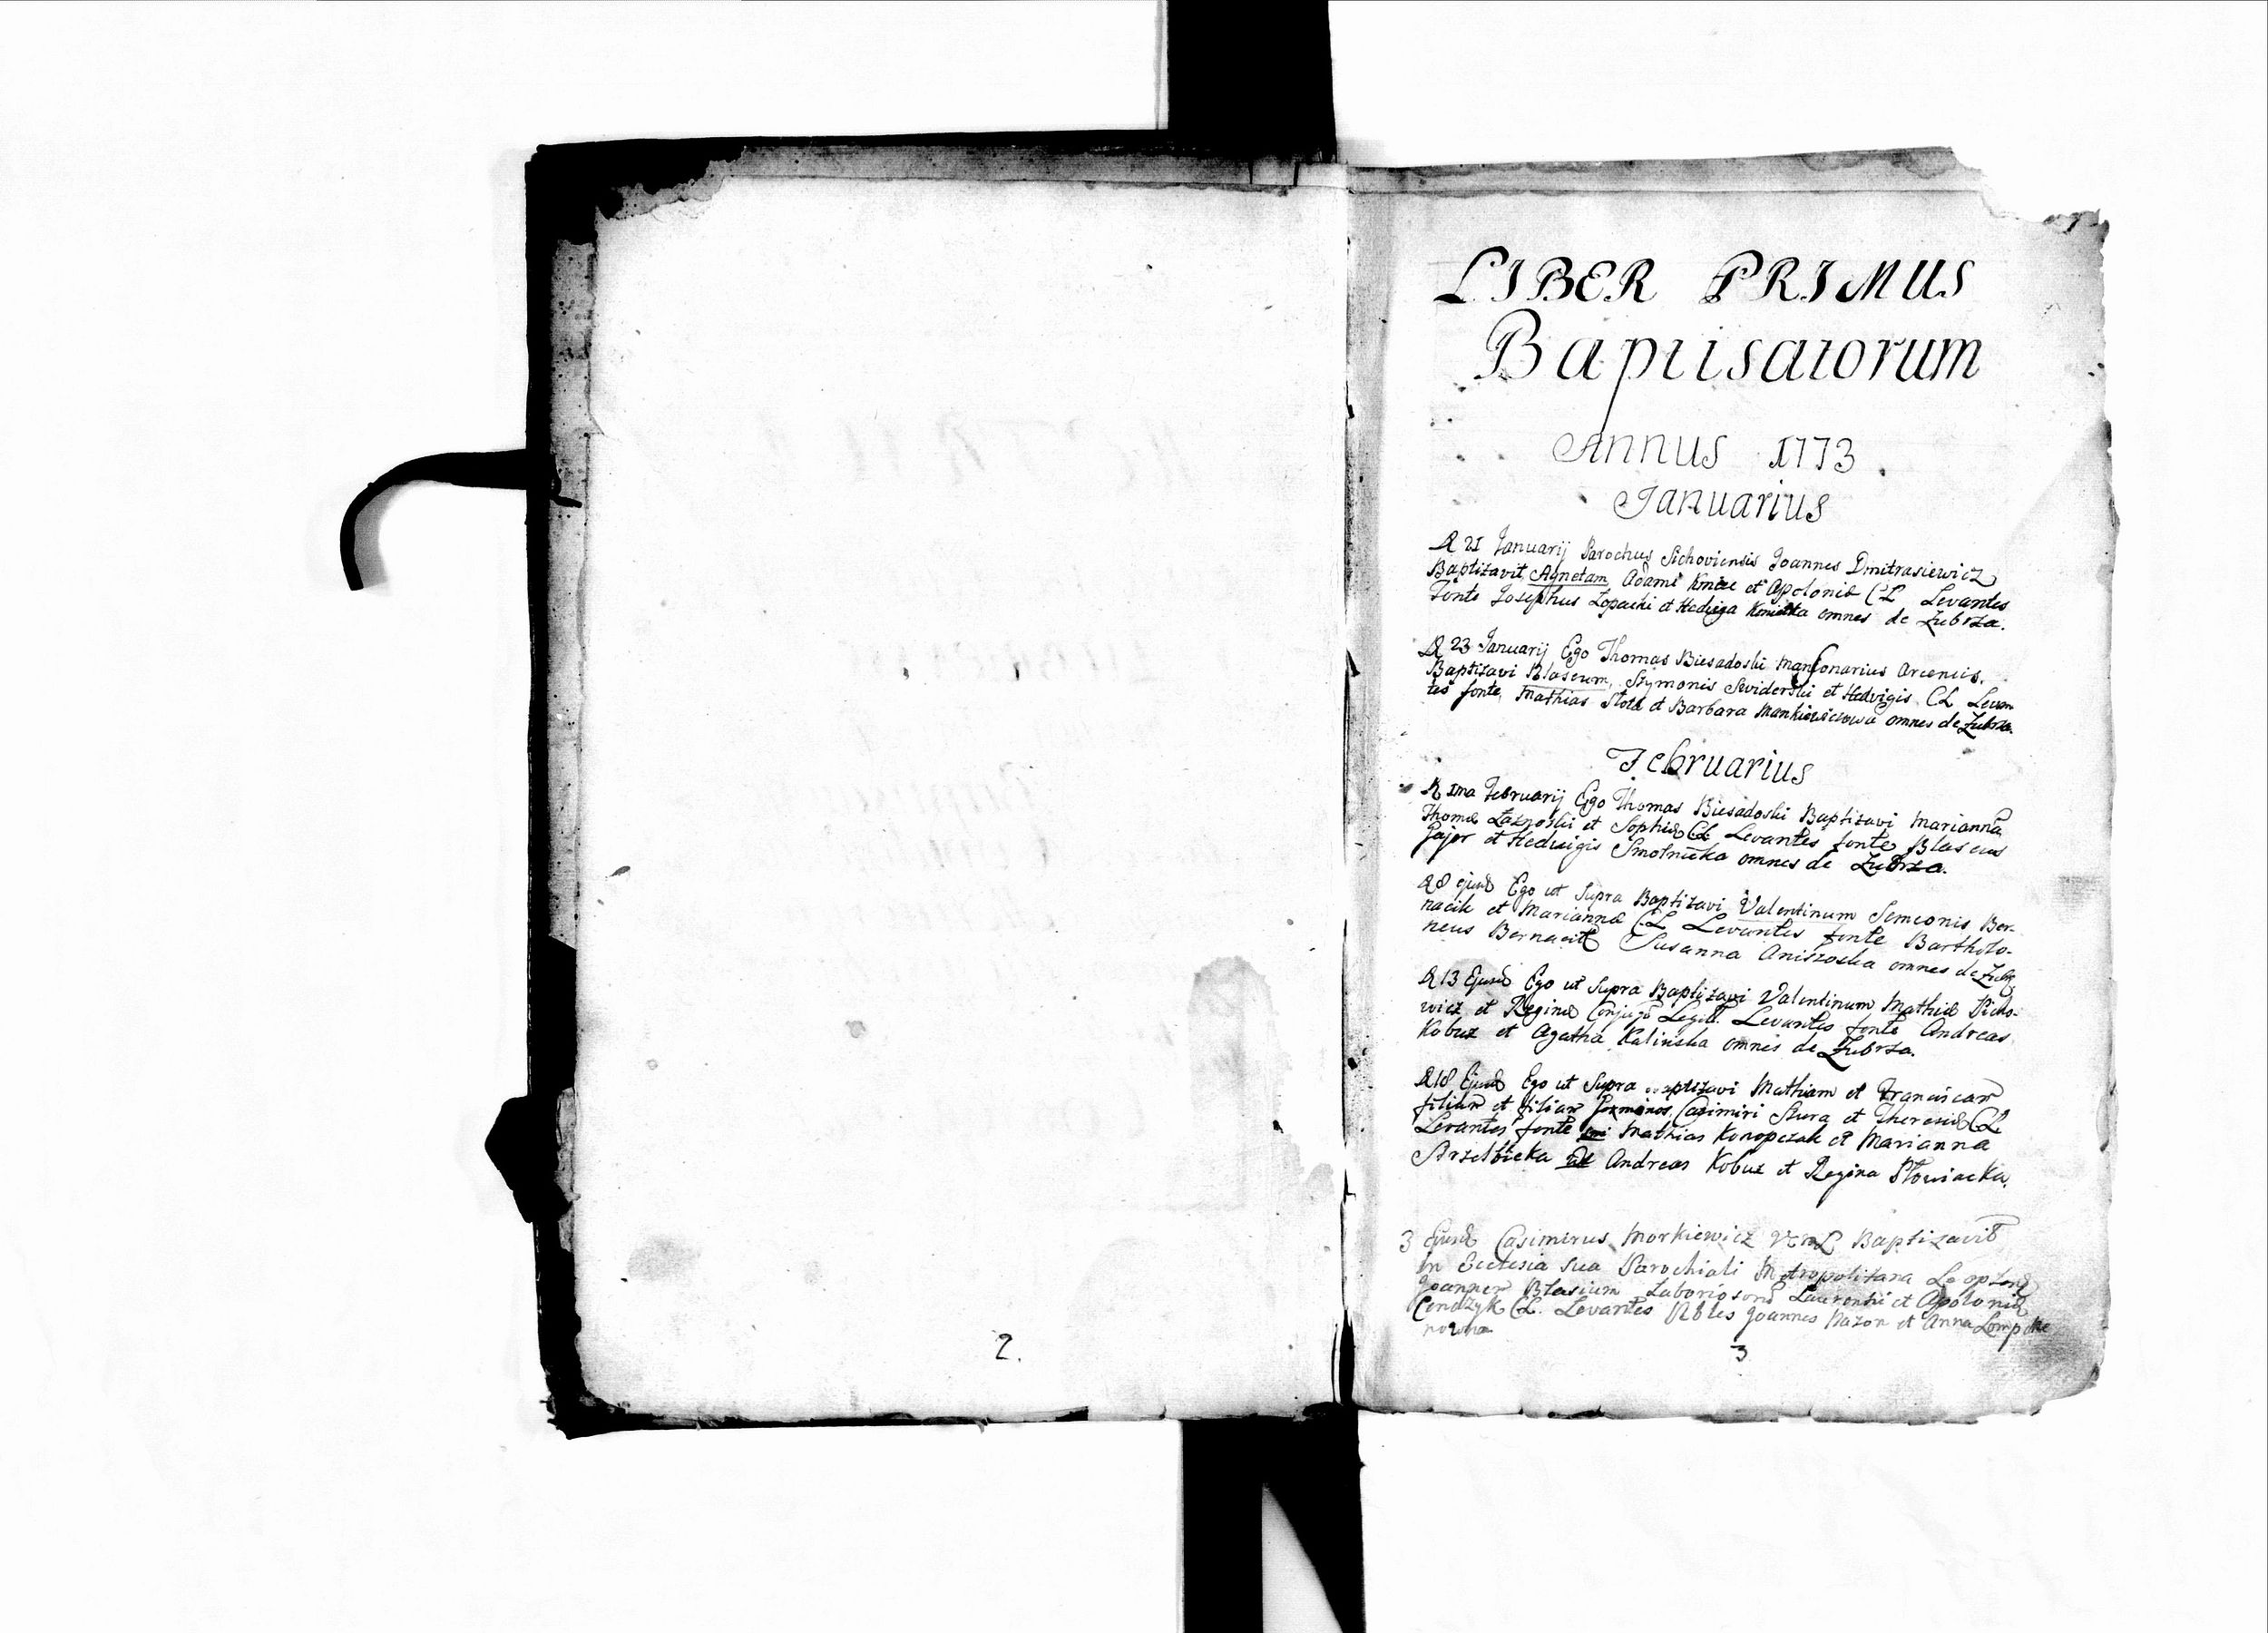 LIBER PRIMUS
Baptisatorum
Annus 1773.
Ianuarius
21 Ianuarij Parochus Sichoviensis Joannes Dmitrasiewicz
Baptizavit Agnetam Adami et Apoloniæ CL Levantes
Fonte Josephus Łopacki et Hedviga omnes de Zubrza.
23 Ianuarij Ego Thomas Biesadoski Mansonarius Arcensis.
Baptizavi Blaseum, Szymonis Swiderski et Hedvigis CL Levan
tes fonte, Mathias et Barbara Mankiewiczowa omnes de Zubrza.
Februarius
1ma Februarij Ego Thomas Biesadoski Baptizavi Mariannã
Thomæ Łaznoski et Sophiæ CL Levantes fonte Blaseus
Gajor et Hedwigis Smolnicka omnes de Zubrza.
8 ejusd Ego ut Supra Baptizavi Valentinum Semeonis Ber-
nacik et Mariannæ CL Levantes fonte Bartholo-
meus Bernacik Susanna Aniszoska omnes de Zubrz
13 Ejusd Ego ut Supra Baptizavi Valentinum Mathiæ Picko-
wicz et Reginæ Conjugũ Legitt. Levantes fonte Andreas
Kobuz et Agatha Kalinska omnes de Zubrza.
18 Ejusd Ego ut Supra Mathiam et Franciscam
filium et filiam Casimiri Skura et Theresiæ CL
Levantes fonte Mathias Konopczak et Marianna
Strzelbicka Andreas Kobuz et Regina Słowiacka.
3 Ejusd Casimirus Morkiewicz Baptizavit
In Ecclesia sua Parochiali Metropolitana Leopolens
Joannem Blasium Laboriosorũ Laurentii et Apoloniæ
Cendzyk CL. Levantes Nobles Joannes Nazon et Anna
nowna
2.
3